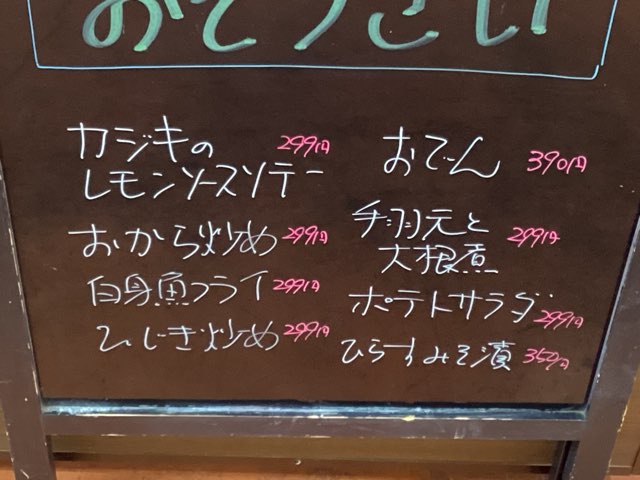 おそうざい
カジキの 299円
レモンソースソテー
おから炒め 299円
白身魚フライ 299円
ひじき炒め 299円
おでん 390円
手羽元と 299円
大根煮
ポテトサラダ 299円
ひらすみそ漬 359円